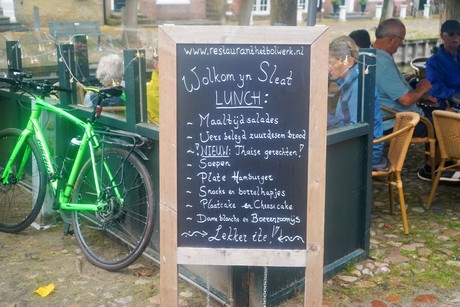 www.restauranthetbolwerk.nl
Wolkom yn Sleat
LUNCH:
~ Maaltijd salades
~ Vers belegd zuurdesem brood
~ "NIEUW: Thaise gerechten!"
Soepen
~ Plate Hamburger
~ Snacks en borrelhapjes
~ Plaatcake en Cheesecake
~ Dame blanche en Boerenroomijs
Lekker ite!!